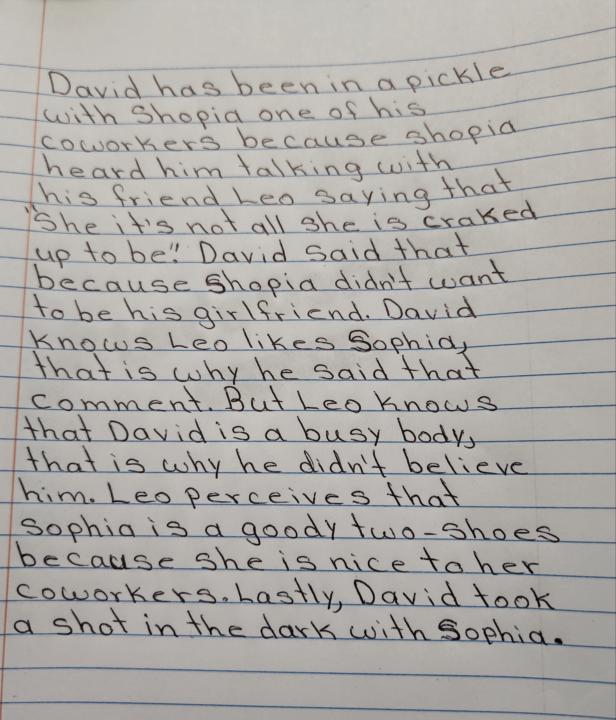 David has been in a pickle
with Shopia one of his
coworkers because shopia
heard him talking with
his friend Leo saying that
"She it's not all she is craked
up to be". David said that
because Shopia didn't want
to be his girlfriend. David
Knows Leo likes Sophia,
that is why he said that
comment. But Leo Knows
that David is a busy body,
that is why he didn't believe
him. Leo perceives that
Sophia is a goody two-shoes
because she is nice to her
coworkers. Lastly, David took
a shot in the dark with Sophia.